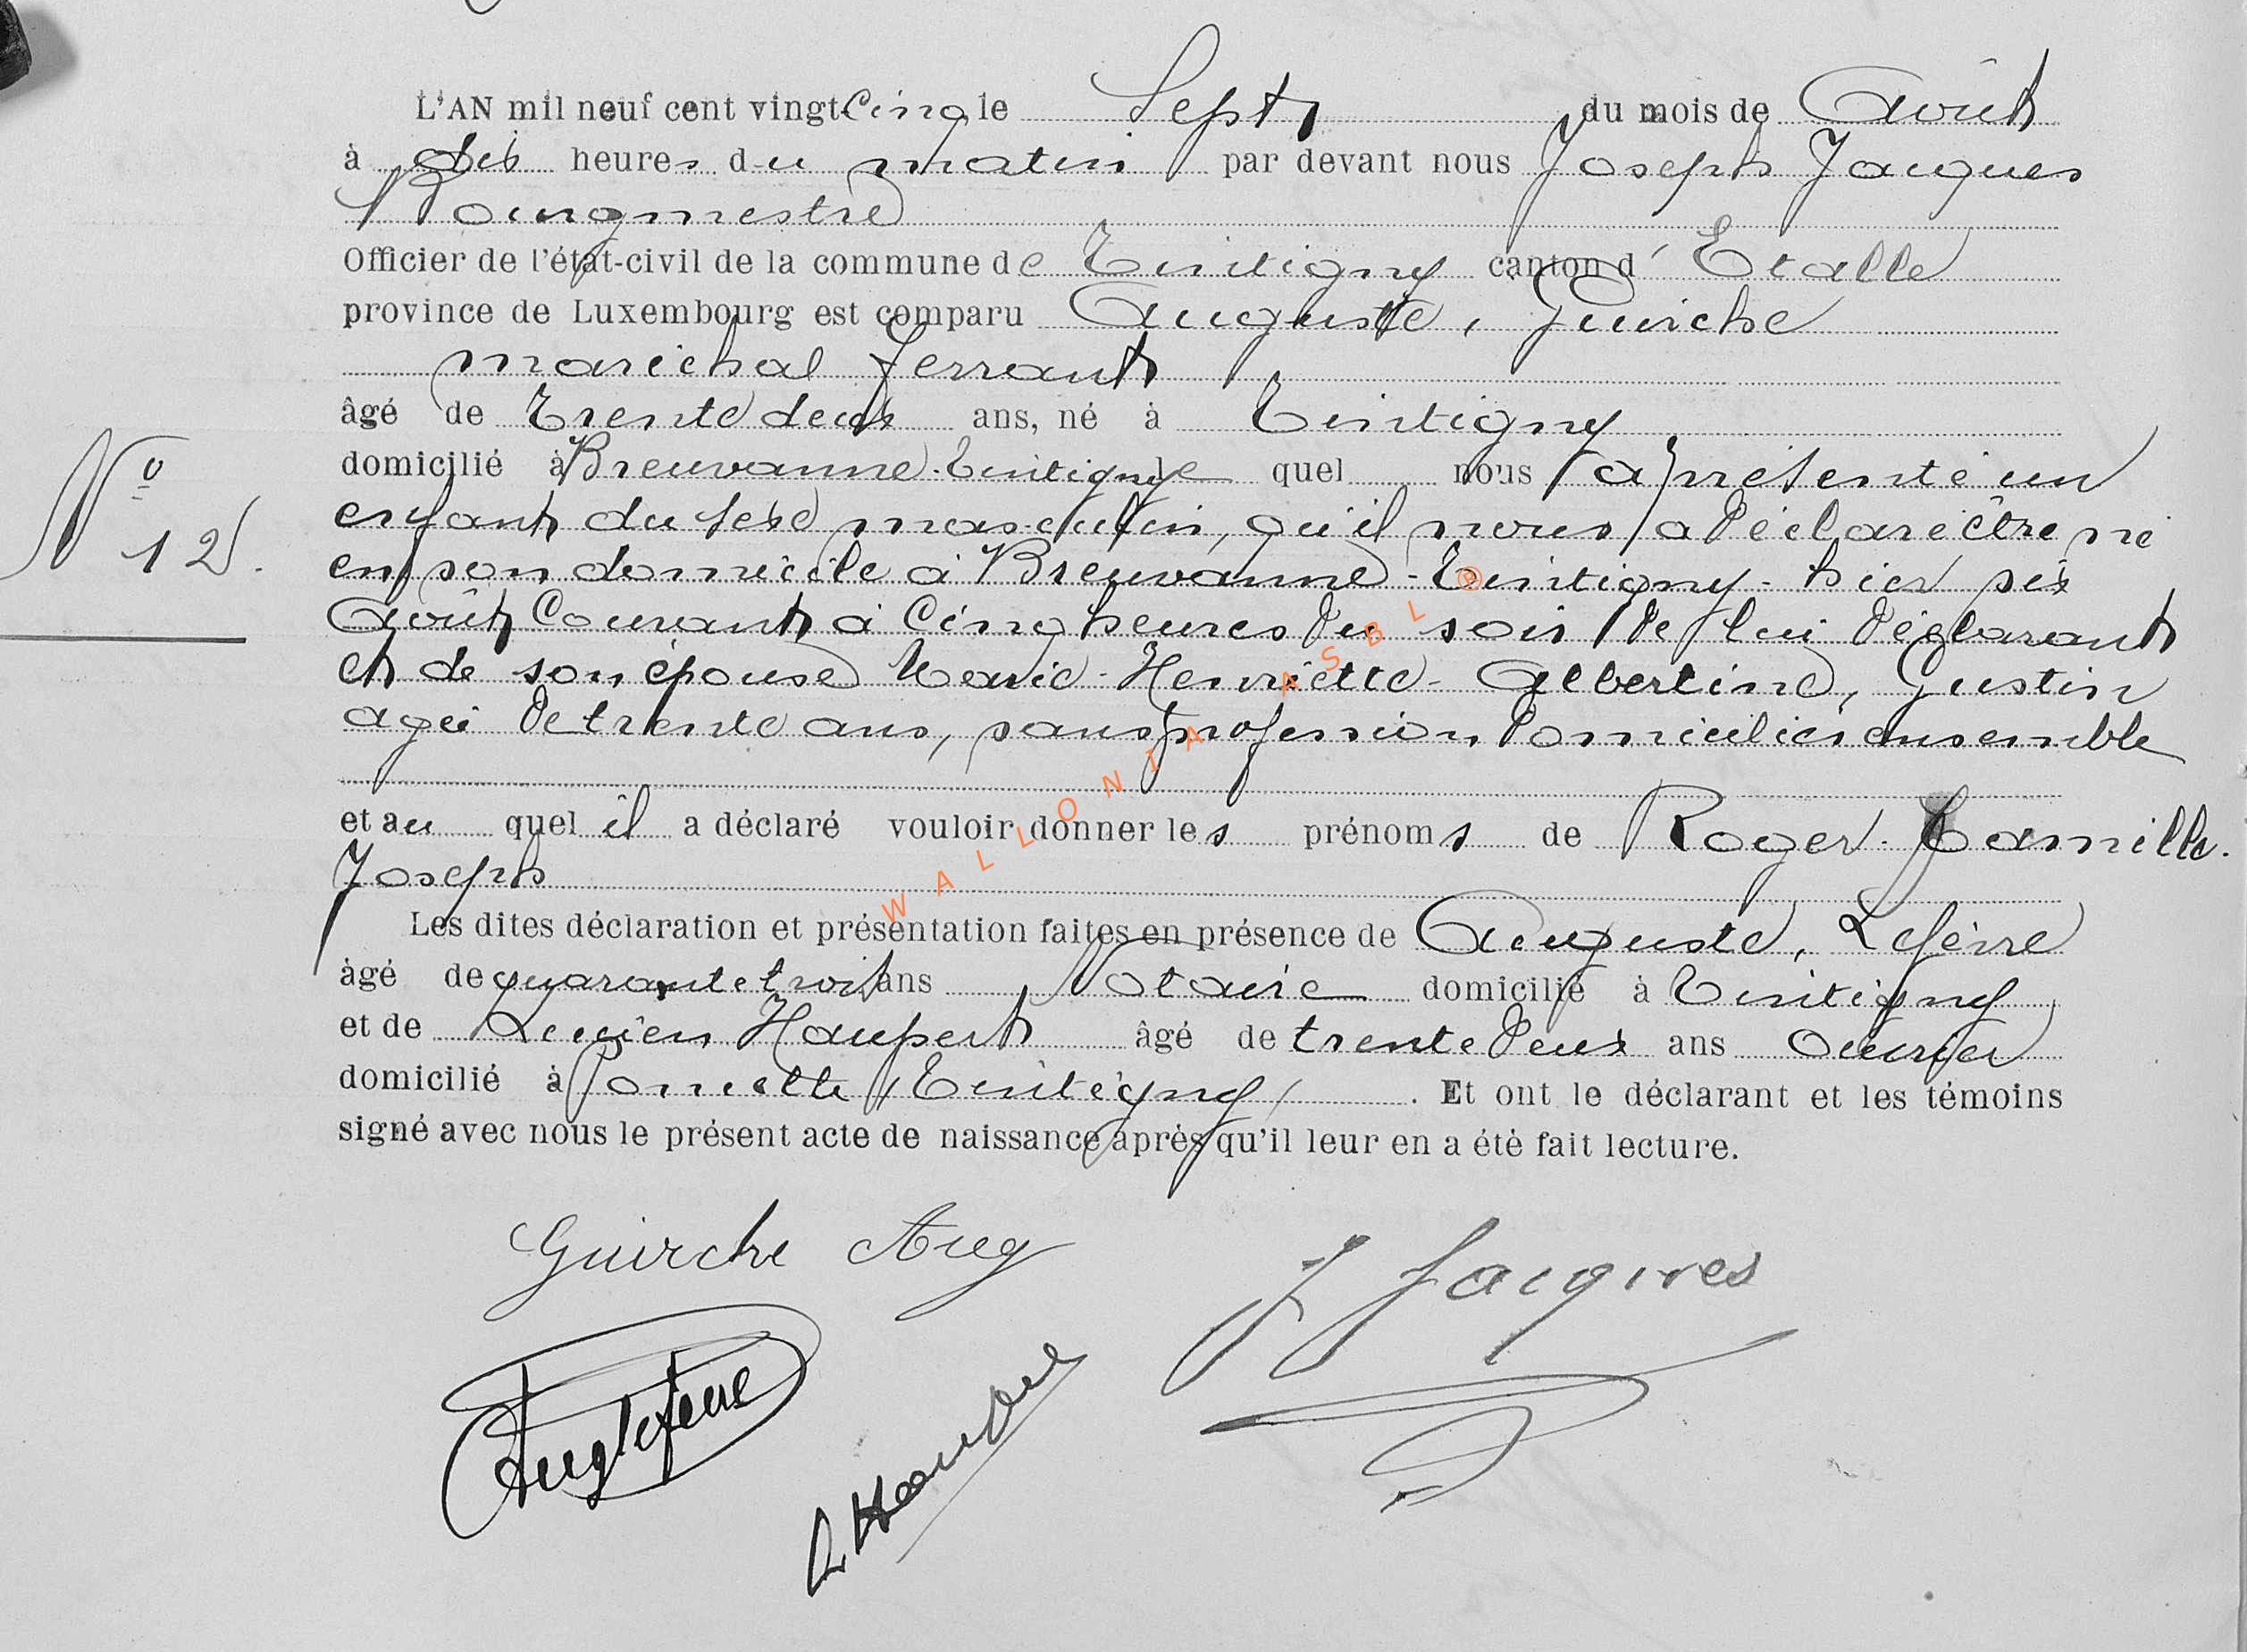 L'AN mil neuf cent vingt Cinq le Sept du mois de Août
à dix heures du matin par devant nous Joseph Jacques
Bourgmestre
Officier de l'état-civil de la commune de Tintigny canton d' Etalle
province de Luxembourg est comparu Auguste, Guirche
maréchal ferrant
âgé de trente deux ans, né à Tintigny
domicilié à Breuvanne-Tintigny le quel nous a présenté un
N° 12.
enfant du sexe masculin, qu'il nous a déclaré être né
en son domicile à Breuvanne-Tintigny - hier six
Août Courant à Cinq heures du soir de lui déclarant
et de son épouse Marie-Henriette-Albertine, Gustin
agée de trente ans, sans profession domiciliés ensemble
et au quel il a déclaré vouloir donner les prénoms de Roger-Camille.
Joseph
Les dites déclaration et présentation faites en présence de Auguste, Lefèvre
âgé de quarante trois ans Notaire domicilié à Tintigny
et de Lucien Haupert âgé de trente deux ans Ouvrier
domicilié à Poncelle (Tintigny). Et ont le déclarant et les témoins
signé avec nous le présent acte de naissance après qu'il leur en a été fait lecture.
Guirche Aug
J Jacques
Aug Lefevre
WALLONIA ASBL ®